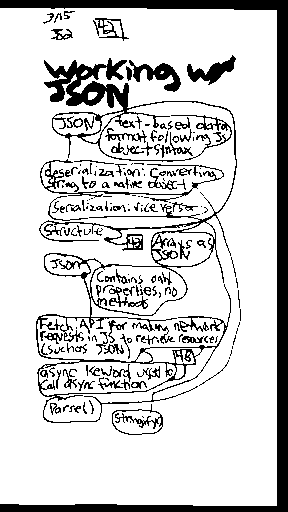 3/15
J82
42
Working w/
JSON
JSON
text-based data
format following JS
object syntax
deserialization: Converting
string to a native object
Serialization: vice versa
Structure
Arrays as
JSON
Json
Contains only
properties, no
methods
Fetch API for making network
requests in JS to retrieve resources
(such as JSON)
48
async keyword used to
call async function
Parse()
Stringify()